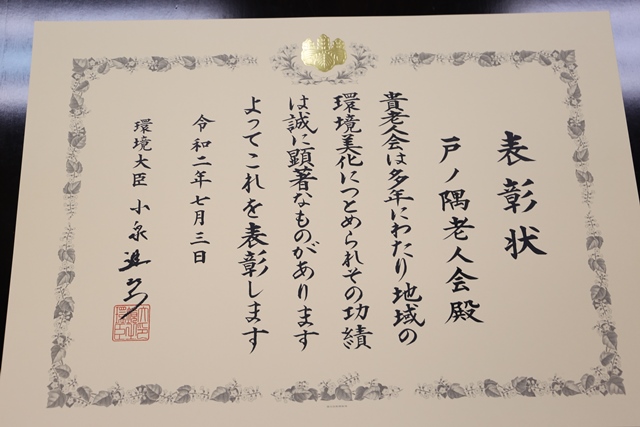 表彰状
戸ノ隅老人会殿
貴老人会は多年にわたり地域の
環境美化につとめられその功績
は誠に顕著なものがあります
よってこれを表彰します
令和二年七月三日
環境大臣 小泉進次郎